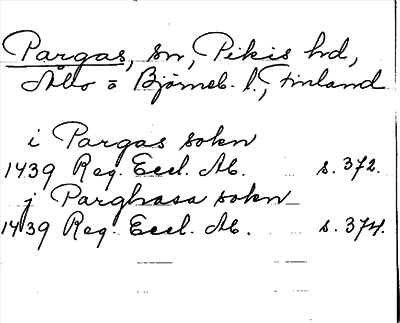 Pargas, sn, Pikis hd,
Åbo o Björneb. l., Finland
i Pargas sokn
1439 Reg. Eccl. Ab. s. 372.
j Parghasa sokn
1439 Reg. Eccl. Ab. s. 374.